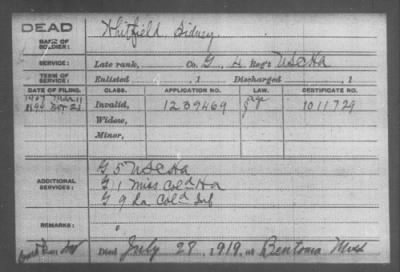 DEAD
NAME OF SOLDIER: Whitfield, Sidney
SERVICE: Late rank, Co. G, 4 Reg't USCHA
TERM OF SERVICE: Enlisted , 1 Discharged , 1
DATE OF FILING. CLASS. APPLICATION NO. LAW. CERTIFICATE NO.
1907 Mar 11
Invalid, 1239469 1011729
Widow,
Minor,
ADDITIONAL SERVICES: G 5 USCHA
G, 1 Miss Col'd HA
G 9 La. Col'd Inf
REMARKS:
Died July 28, 1919, at Bentonia Miss